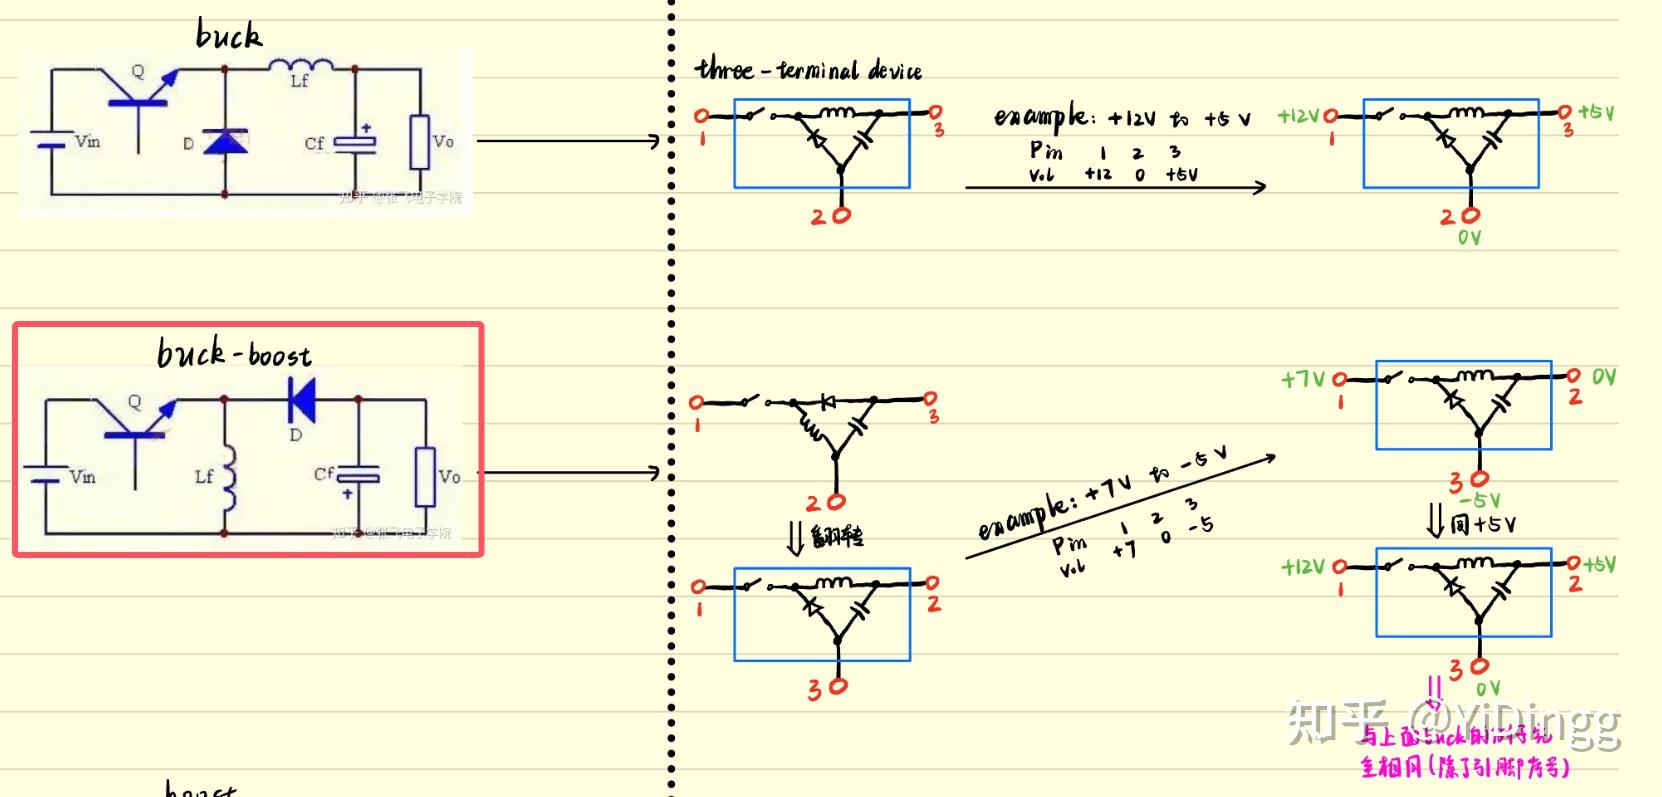 buck
Q
Lf
Vin
D
Cf
+
Vo
知乎 @张飞电子学院
three-terminal device
1
3
2
example: +12V to +5V
Pin 1 2 3
Vol +12 0 +5V
+12V
+5V
1
3
2
0V
buck-boost
Q
D
Vin
Lf
Cf
+
Vo
知乎 @张飞电子学院
1
3
2
翻转
1
2
3
example: +7V to -5V
Pin 1 2 3
Vol +7 0 -5
+7V
0V
1
2
3
-5V
同+5V
+12V
+5V
1
2
3
0V
知乎 @YiDingg
与上面buck的
全相同(除了引脚序号)
boost